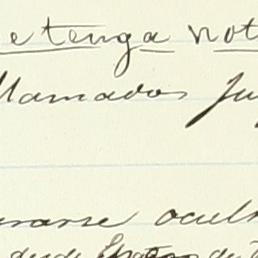 e tenga not
llamados Ju
rarse ocul
desde